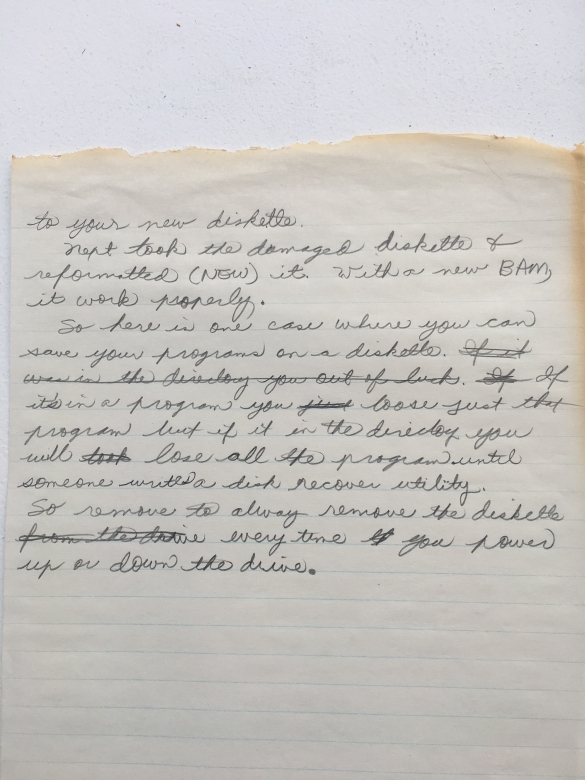 to your new diskette.
Next took the damaged diskette &
reformatted (NEW) it. With a new BAM,
it work properly.
So here is one case where you can
save your programs on a diskette. If it
was in the directory you out of luck. If If
it's in a program you just loose just that
program but if it in the directoy you
will took lose all the program until
someone writes a disk recover utility.
So remove to alway remove the diskette
from the drive every time if you power
up or down the drive.